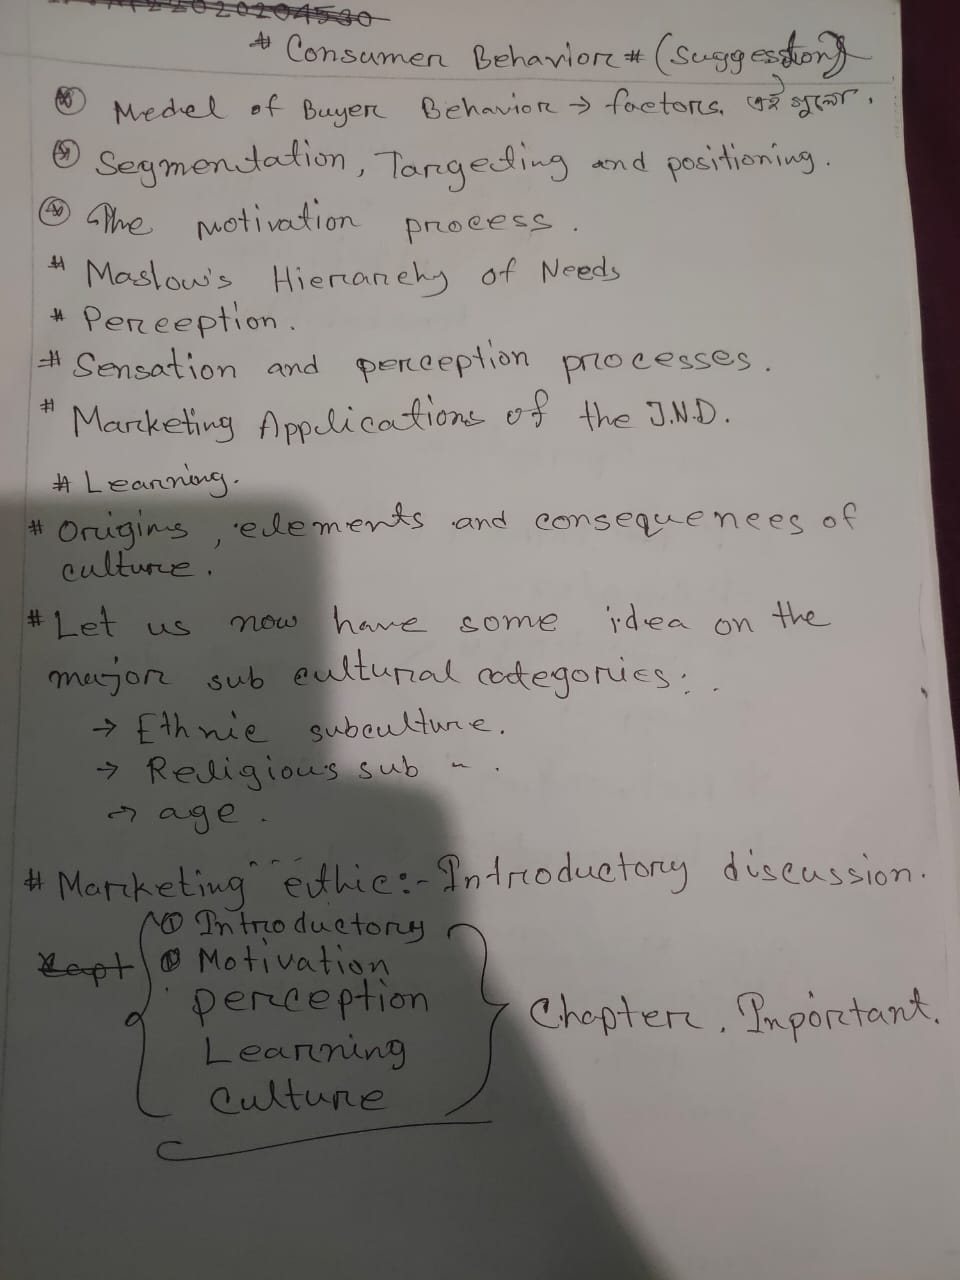 # Consumer Behavior # (Suggestion)
Model of Buyer Behavior → factors. এই গুলো.
Segmentation, Targeting and positioning.
The motivation process.
# Maslow's Hierarchy of Needs
# Perception.
# Sensation and perception processes.
# Marketing Applications of the J.N.D.
# Learning.
# Origins, elements and consequences of
culture.
# Let us now have some idea on the
major sub cultural categories:.
→ Ethnic subculture.
→ Religious sub " .
→ age.
# Marketing ethic:- Introductory discussion.
① Introductory
① Motivation
perception
Learning
Culture
Chapter. Inportant.